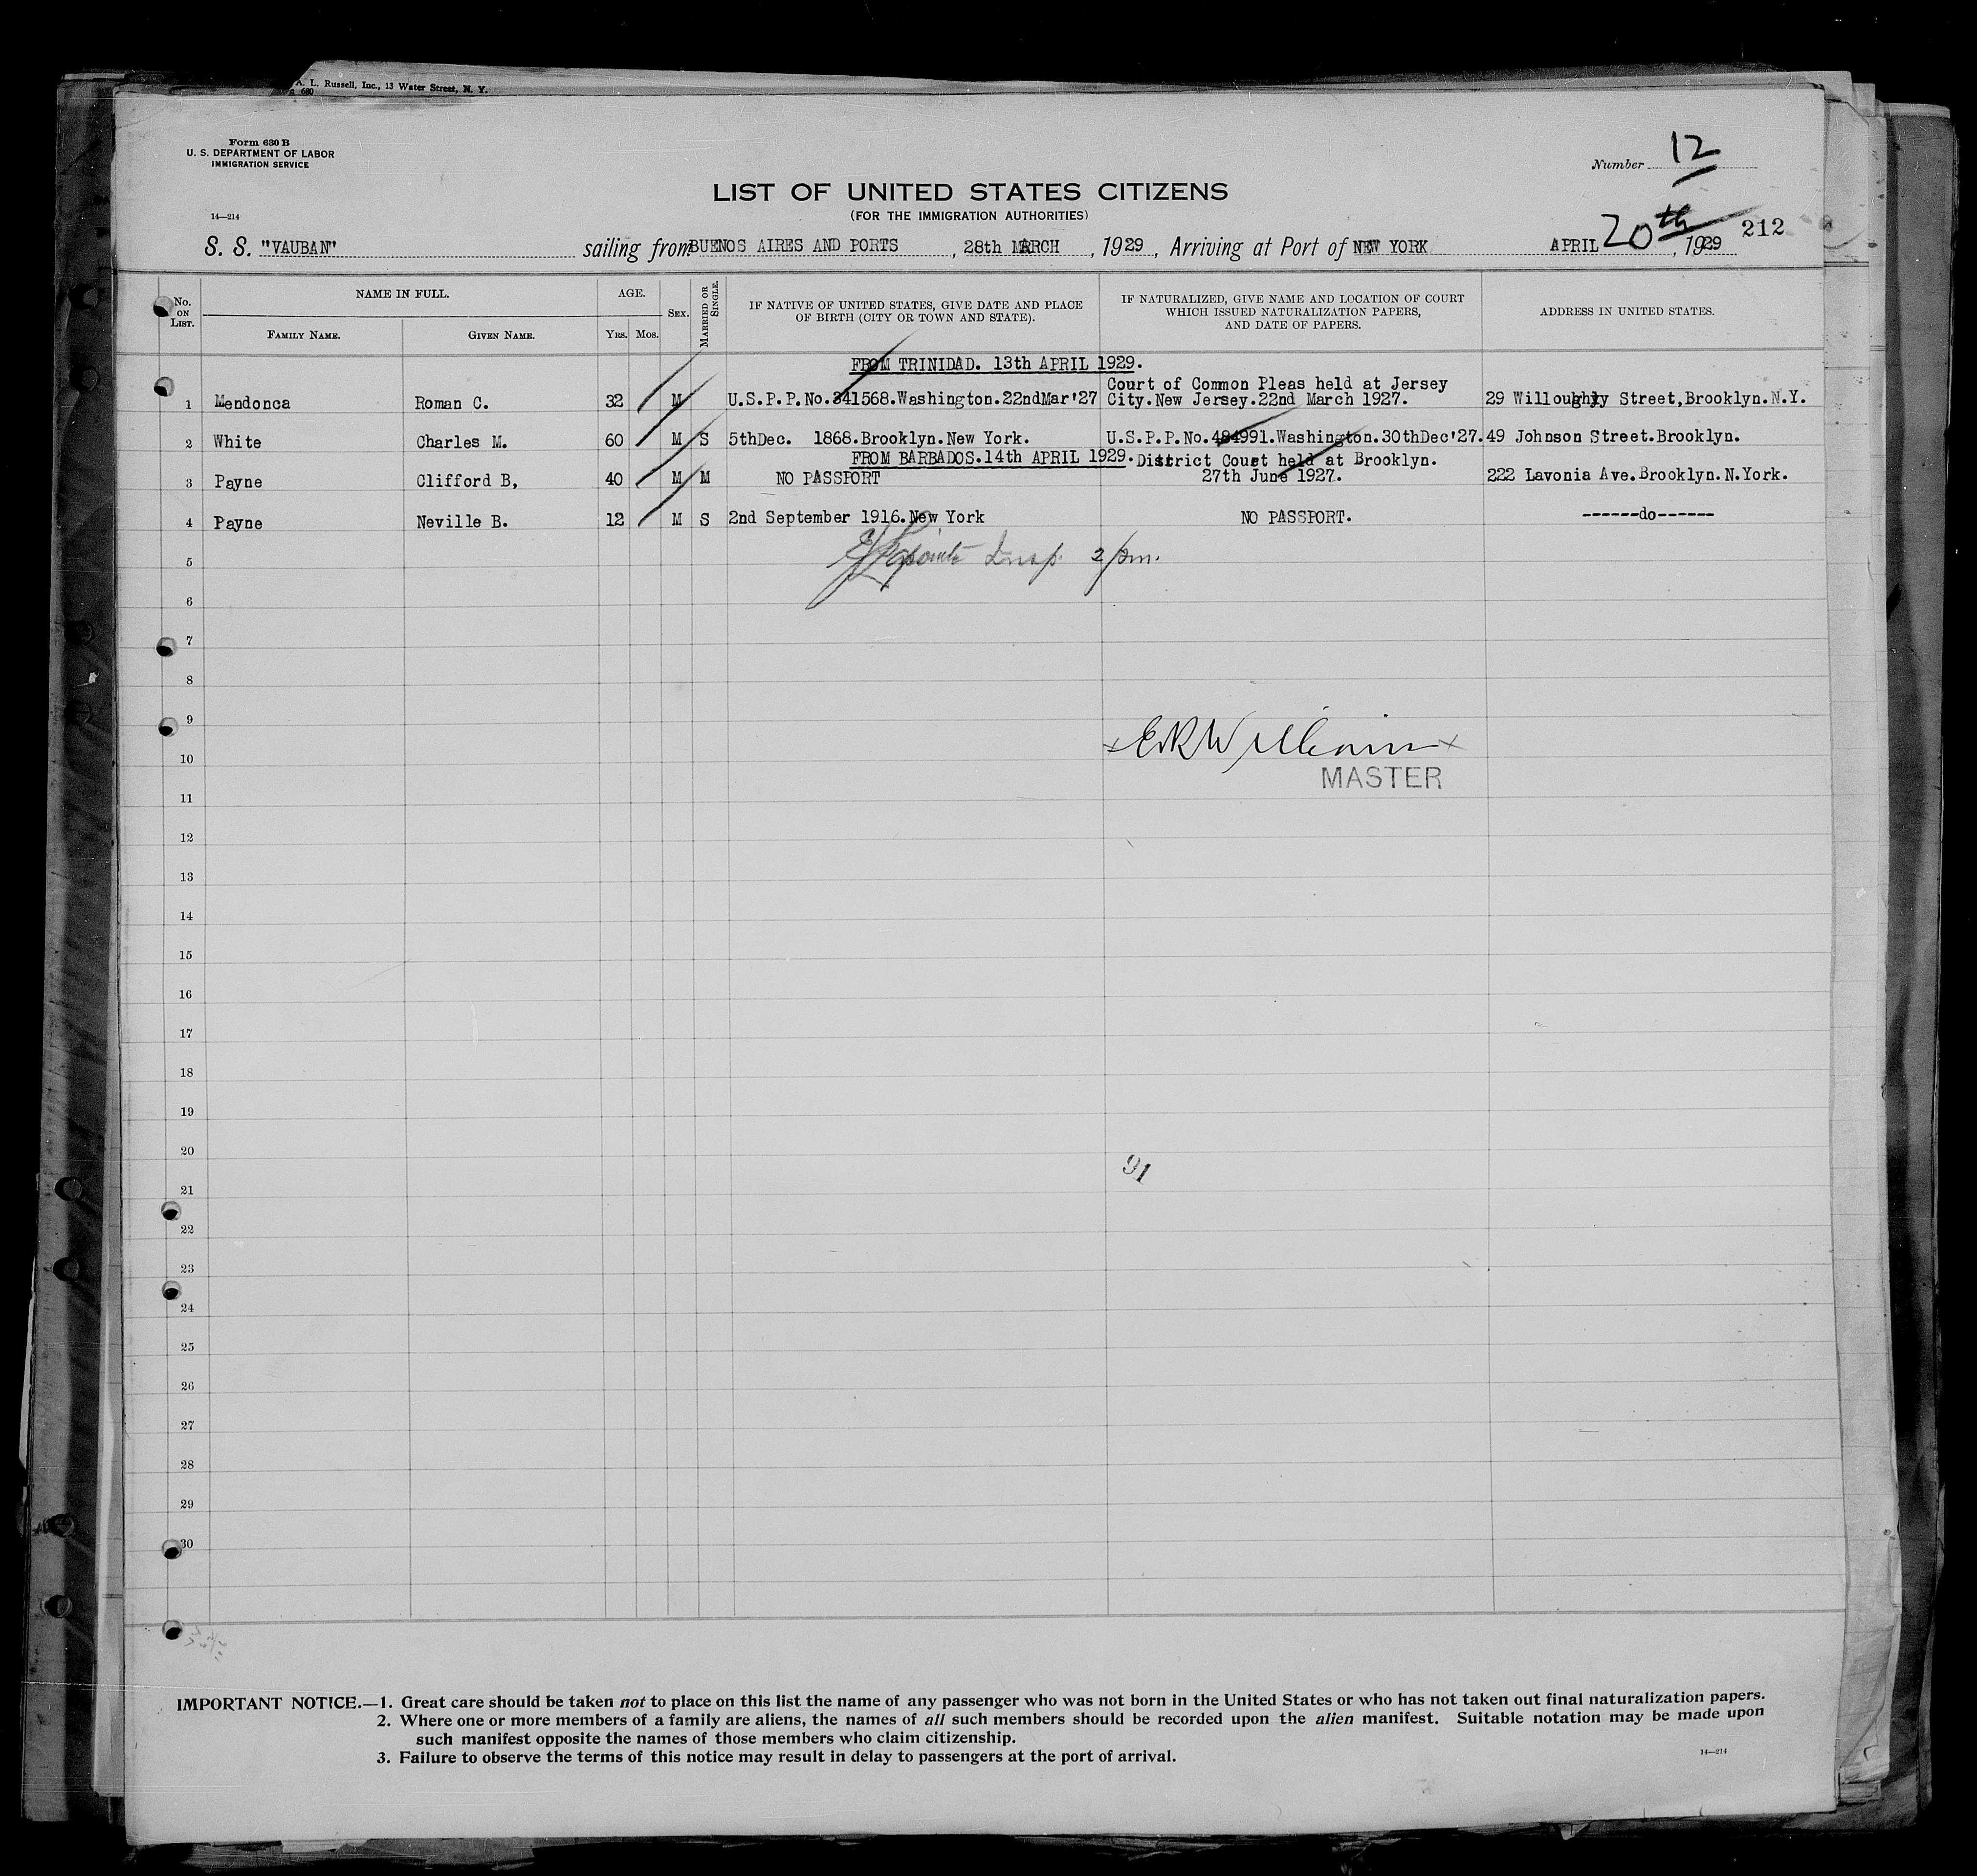 A. L. Russell, Inc., 13 Water Street, N. Y.
680
Form 630 B
U. S. DEPARTMENT OF LABOR
IMMIGRATION SERVICE
Number 12
LIST OF UNITED STATES CITIZENS
(FOR THE IMMIGRATION AUTHORITIES)
14—214
212
S. S. "VAUBAN" sailing from BUENOS AIRES AND PORTS, 28th MARCH, 1929, Arriving at Port of NEW YORK APRIL 20th, 1929
No. ON LIST. NAME IN FULL. AGE. SEX. MARRIED OR SINGLE. IF NATIVE OF UNITED STATES, GIVE DATE AND PLACE OF BIRTH (CITY OR TOWN AND STATE). IF NATURALIZED, GIVE NAME AND LOCATION OF COURT WHICH ISSUED NATURALIZATION PAPERS, AND DATE OF PAPERS. ADDRESS IN UNITED STATES.
FAMILY NAME. GIVEN NAME. YRS. MOS.
FROM TRINIDAD. 13th APRIL 1929.
Court of Common Pleas held at Jersey
1 Mendonca Roman C. 32 M U.S.P.P.No.341568.Washington.22ndMar'27 City.New Jersey.22nd March 1927. 29 Willoughby Street,Brooklyn.N.Y.
2 White Charles M. 60 M S 5thDec. 1868.Brooklyn.New York. U.S.P.P.No.484991.Washington.30thDec'27. 49 Johnson Street.Brooklyn.
FROM BARBADOS.14th APRIL 1929. District Court held at Brooklyn.
3 Payne Clifford B, 40 M M NO PASSPORT 27th June 1927. 222 Lavonia Ave.Brooklyn.N.York.
4 Payne Neville B. 12 M S 2nd September 1916.New York NO PASSPORT. ------do------
5 Insp. 2/pm.
6
7
8
9
10
MASTER
11
12
13
14
15
16
17
18
19
20
91
21
22
23
24
25
26
27
28
29
30
IMPORTANT NOTICE.—1. Great care should be taken not to place on this list the name of any passenger who was not born in the United States or who has not taken out final naturalization papers.
2. Where one or more members of a family are aliens, the names of all such members should be recorded upon the alien manifest. Suitable notation may be made upon
such manifest opposite the names of those members who claim citizenship.
3. Failure to observe the terms of this notice may result in delay to passengers at the port of arrival.
14—214